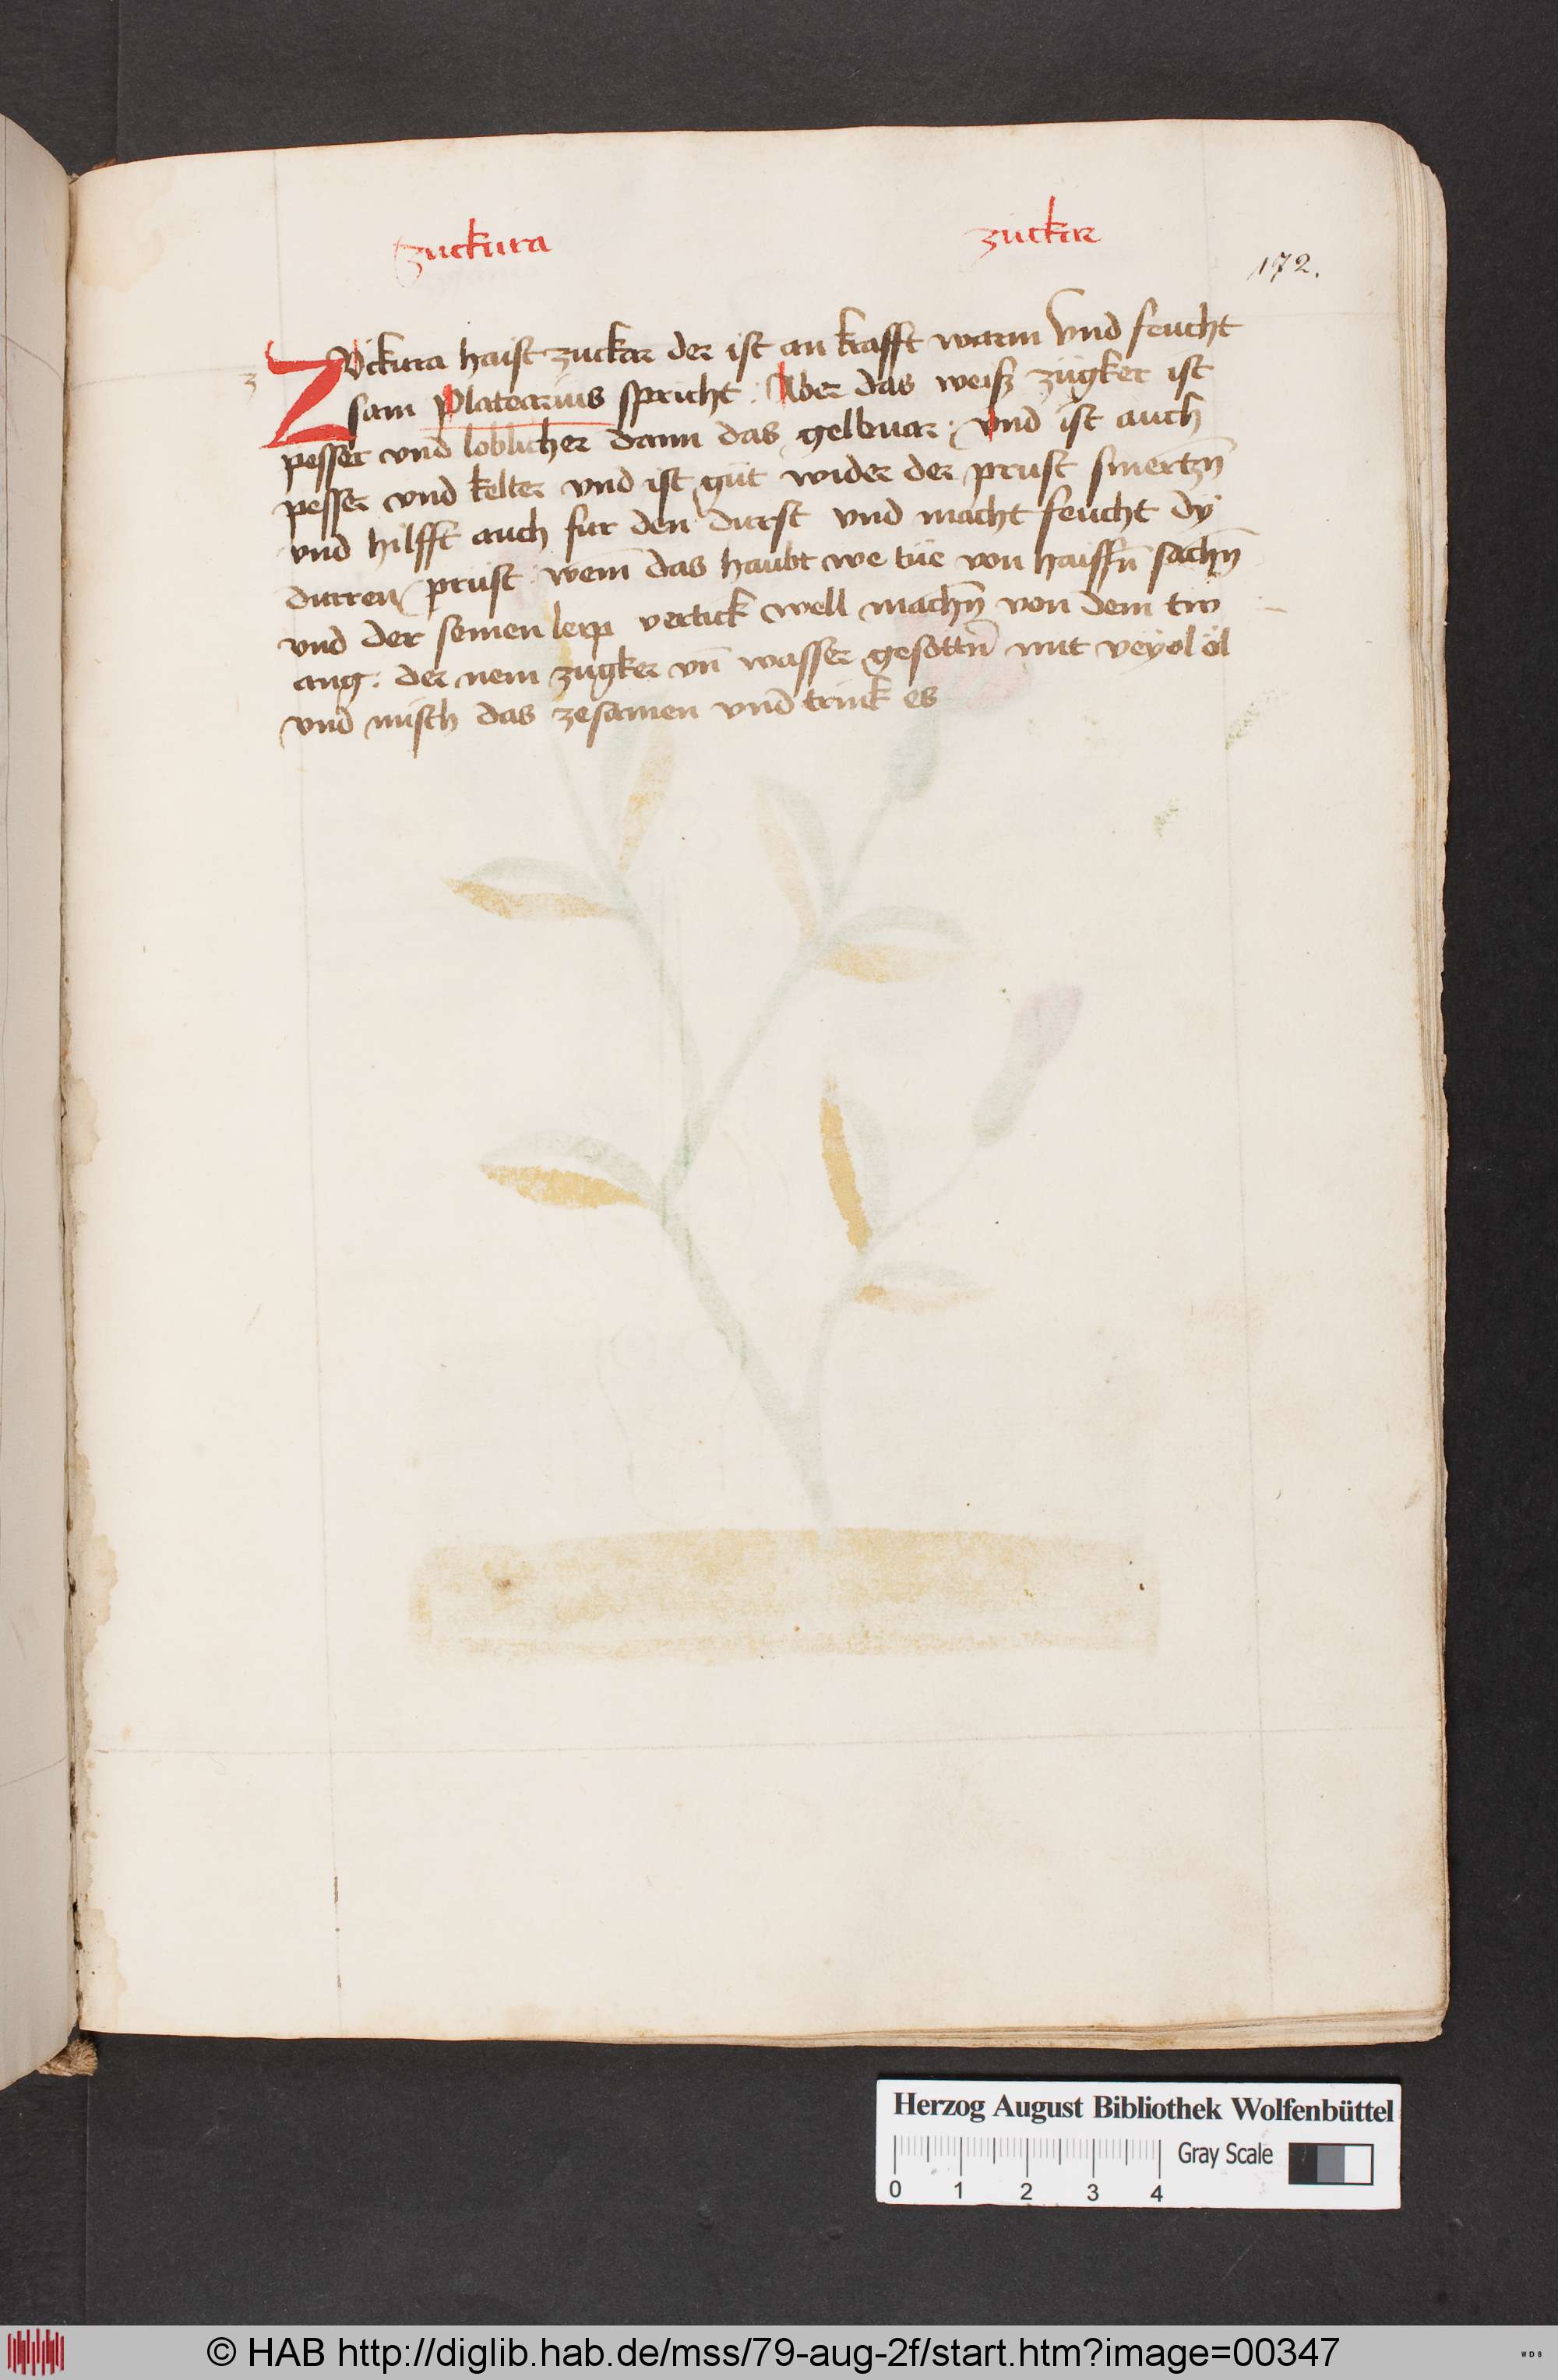 zuckura zucker
172.
z
ZVckura haist zuckar der ist an krafft warm vnd feucht
sam Platearius spricht : Aber das weiß zugker ist
pesser vnd loblicher dann das gelbuar : vnd ist auch
pesser vnd kelter vnd ist gut wider der prust smertzn̄
vnd hilfft auch fur den durst vnd macht feucht dÿ
durren prust : wem̄ das haubt we tue von haissn̄ sachn̄
vnd der seinen leip vertick well machn̄ von dem tw
ang : der nem zugker vn̄ wasser gesottn̄ mit veyol öl
vnd misch das zesamen vnd trinck es
Herzog August Bibliothek Wolfenbüttel
Gray Scale
0 1 2 3 4
© HAB http://diglib.hab.de/mss/79-aug-2f/start.htm?image=00347
WDB